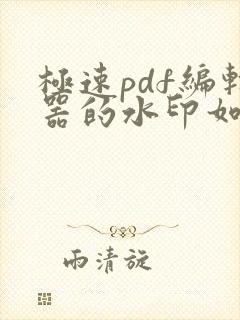 極速pdf編輯
器的水印如
雨清旋